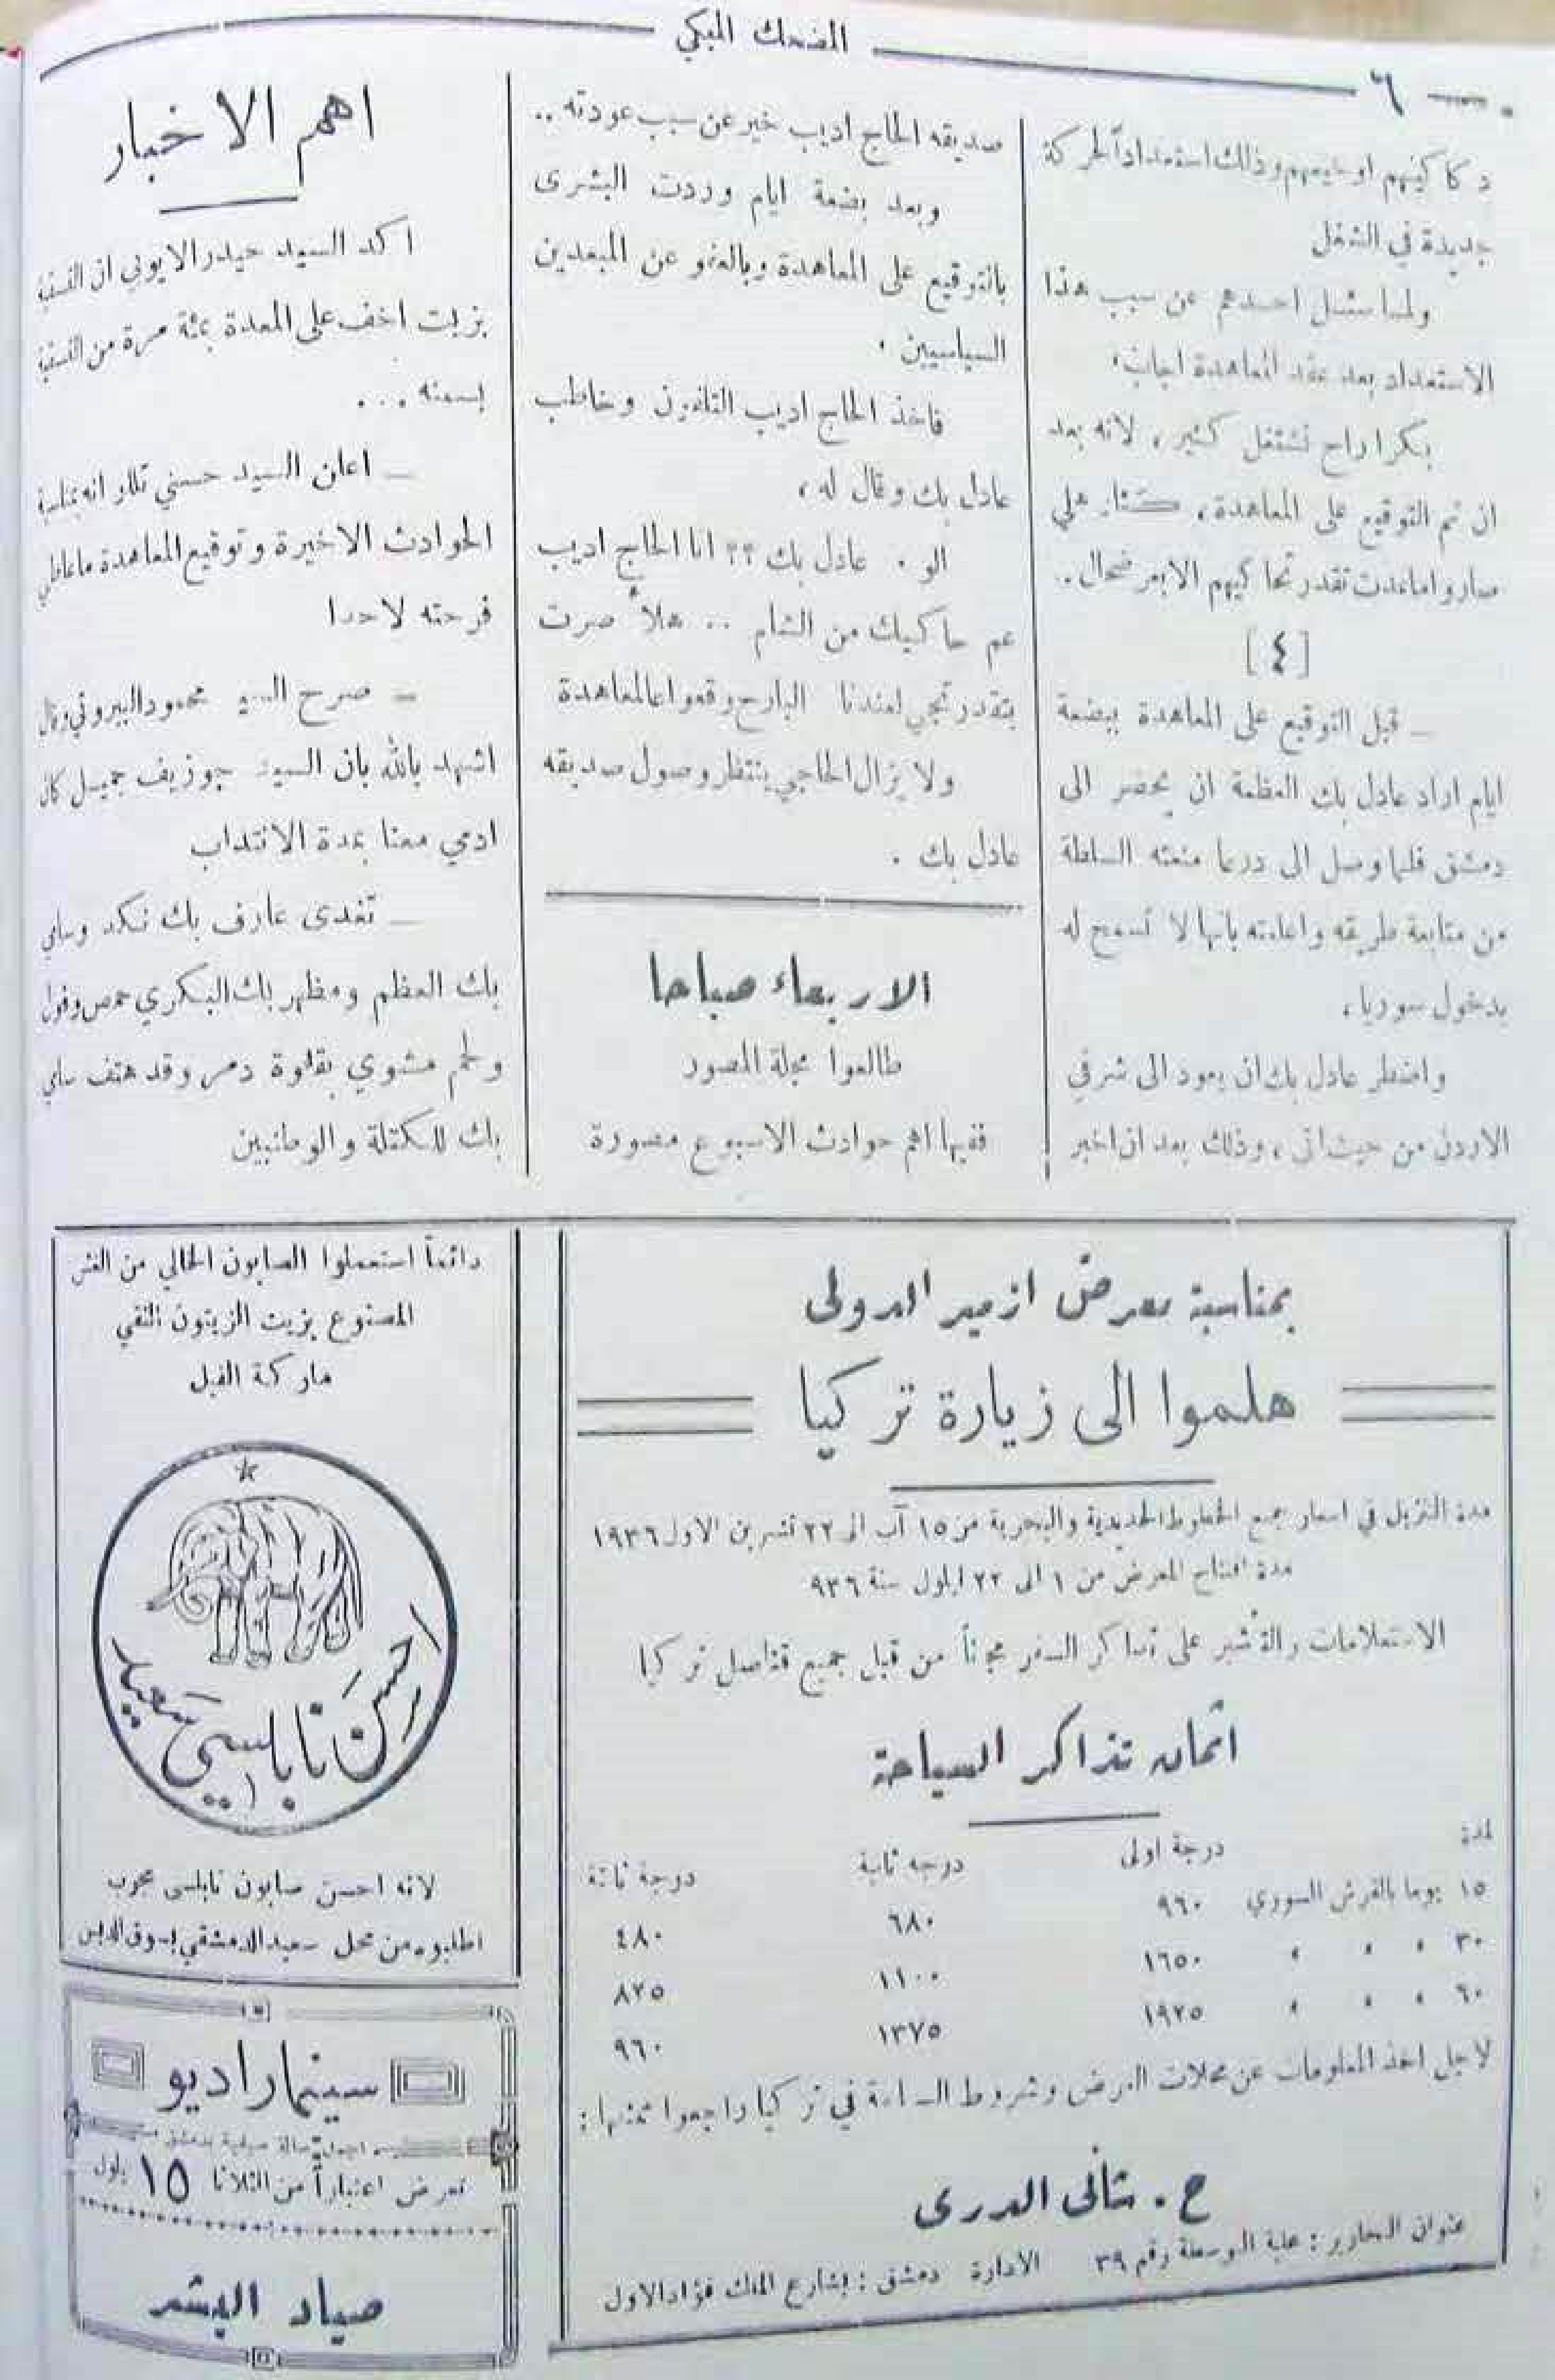 ٦
المضحك المبكي
دكاكينهم او خيمهم وذلك استعداداً لحركة
جديدة في الشغل
ولما سئل احدهم عن سبب هذا
الاستعداد بعد عقد المعاهدة اجاب،
بكرا راح نشتغل كتير، لانه بعد
ان تم التوقيع على المعاهدة، كتار هلي
صاروا ماعدت تقدر تحاكيهم الا بعرضحال.
[٤]
ــ قبل التوقيع على المعاهدة ببضعة
ايام اراد عادل بك العظمة ان يحضر الى
دمشق فلما وصل الى درعا منعته السلطة
من متابعة طريقه واعلمته بانها لا تسمح له
بدخول سوريا،
واضطر عادل بك ان يعود الى شرقي
الاردن من حيث اتى، وذلك بعد ان اخبر
صديقه الحاج اديب خير عن سبب عودته ..
وبعد بضعة ايام وردت البشرى
بالتوقيع على المعاهدة وبالعفو عن المبعدين
السياسيين .
فاخذ الحاج اديب التلفون وخاطب
عادل بك وقال له،
الو . عادل بك ؟؟ انا الحاج اديب
عم حاكيك من الشام .. هلأ صرت
بتقدر تجي لعندنا البارح وقعوا عالمعاهدة
ولا يزال الحاجي ينتظر وصول صديقه
عادل بك .
الاربعاء صباحا
طالعوا مجلة المصور
ففيها اهم حوادث الاسبوع مصورة
اهم الاخبار
اكد السيد حيدر الايوبي ان الفستقية
بزيت اخف على المعدة بمئة مرة من
بسمنه ...
ــ اعلن السيد حسني تللو انه بمناسبة
الحوادث الاخيرة وتوقيع المعاهدة ماعاطي
فرحته لاحدا
ــ صرح السيد محمود البيروتي وقال
اشهد بالله بان السيد جوزيف جميل كان
ادمي معنا بمدة الانتداب
ــ تغدى عارف بك نكد وسامي
بك العظم ومظهر بك البكري حمص وفول
ولحم مشوي بقهوة دمر وقد هتف سامي
بك للكتلة والوطنيين
بمناسبة معرض ازمير الدولي
هلموا الى زيارة تركيا
مدة التنزيل في اسعار جميع الخطوط الحديدية والبحرية من ١٥ آب الى ٢٢ تشرين الاول ١٩٣٦
مدة افتتاح المعرض من ١ الى ٢٢ ايلول سنة ٩٣٦
الاستعلامات والتأشير على تذاكر السفر مجاناً من قبل جميع قناصل تركيا
اثمان تذاكر السياحة
لمدة درجة اولى درجه ثانية درجة ثالثة
١٥ يوما بالقرش السوري ٩٦٠ ٦٨٠ ٤٨٠
٣٠ ، ، ، ١٦٥٠ ١١٠٠ ٨٢٥
٦٠ ، ، ، ١٩٢٥ ١٣٧٥ ٩٦٠
لاجل اخذ المعلومات عن محلات العرض وشروط السياحة في تركيا راجعوا ممثلها:
ح . شالى الدرى
عنوان التحارير : علبة البوسطة رقم ٣٩ الادارة دمشق : بشارع الملك فؤاد الاول
دائماً استعملوا الصابون الخالي من الغش
المصنوع بزيت الزيتون النقي
ماركة الفيل
احسن نابلسي سعيد
لانه احسن صابون نابلسي مجرب
اطلبوه من محل سعيد الدمشقي بسوق الدبس
سينما راديو
اجمل صالة صيفية بدمشق
تعرض اعتباراً من الثلاثا ١٥ يلول
صياد البشر